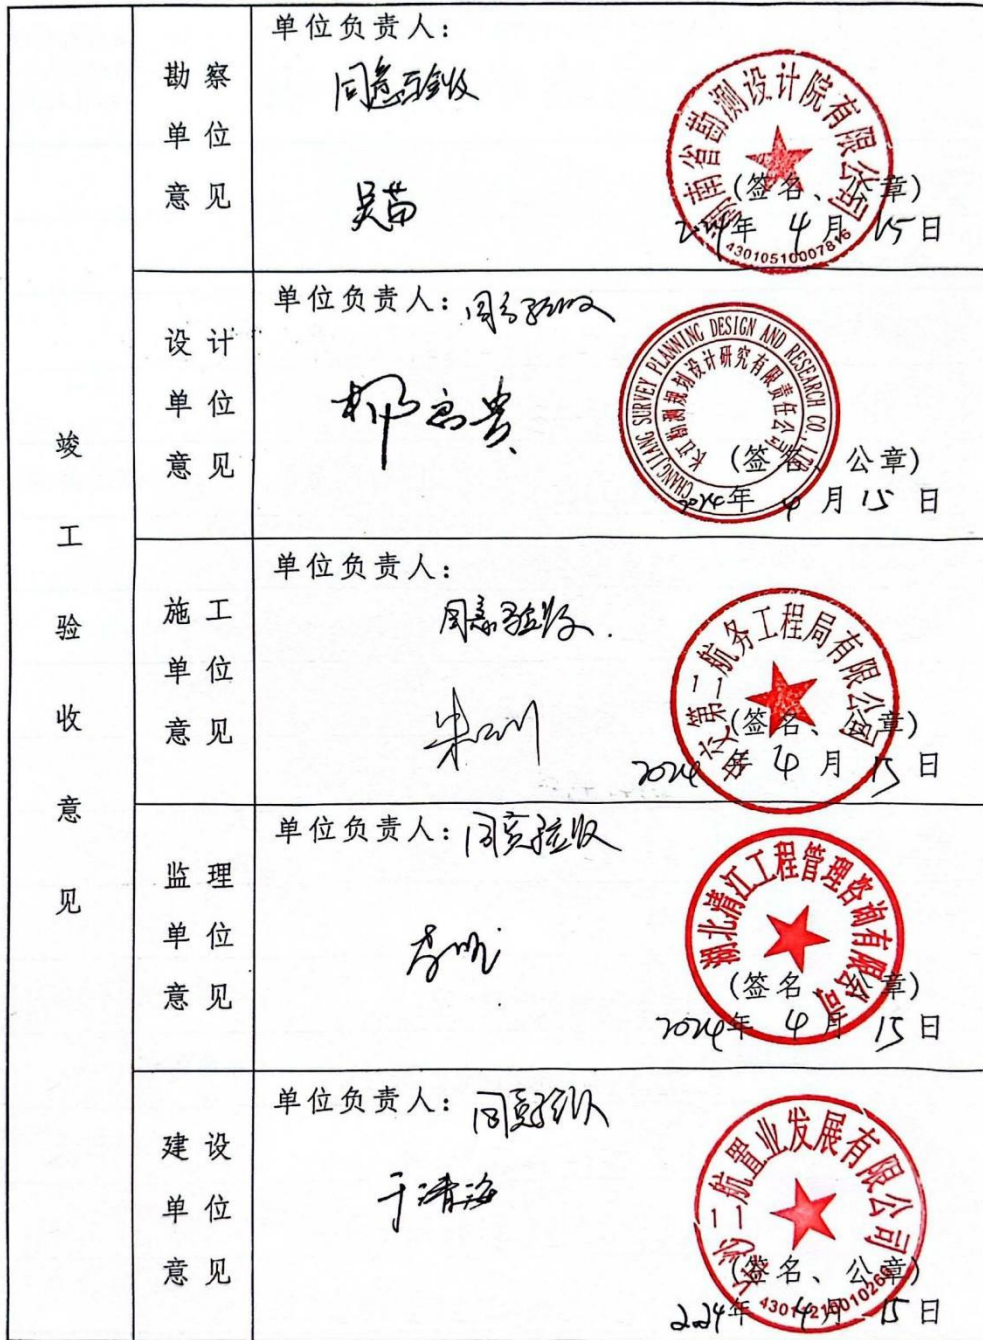 竣工验收意见
勘察单位意见
单位负责人:
同意验收
吴苗
湖南省勘测设计院有限公司
43010510007816
(签名、公章)
2024年 4月 15日
设计单位意见
单位负责人: 同意验收
CHANGJIANG SURVEY PLANNING DESIGN AND RESEARCH CO., LTD
长江勘测规划设计研究有限责任公司
(签名、公章)
2024年 4月 15日
施工单位意见
单位负责人:
同意验收.
中交第二航务工程局有限公司
(签名、公章)
2024年 4月 15日
监理单位意见
单位负责人: 同意验收
湖北清江工程管理咨询有限公司
(签名、公章)
2024年 4月 15日
建设单位意见
单位负责人: 同意验收
于清海
长沙二航置业发展有限公司
(签名、公章)
2024年 4月 15日